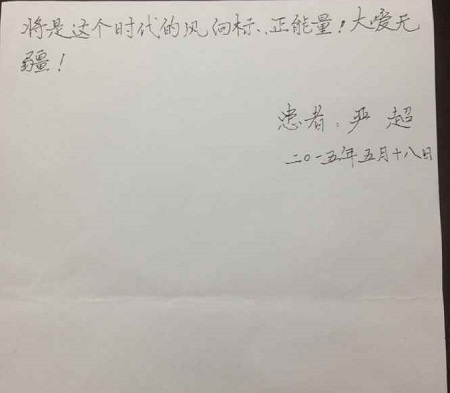 将是这个时代的风向标、正能量！大爱无
疆！
患者：严超
二〇一五年五月十八日